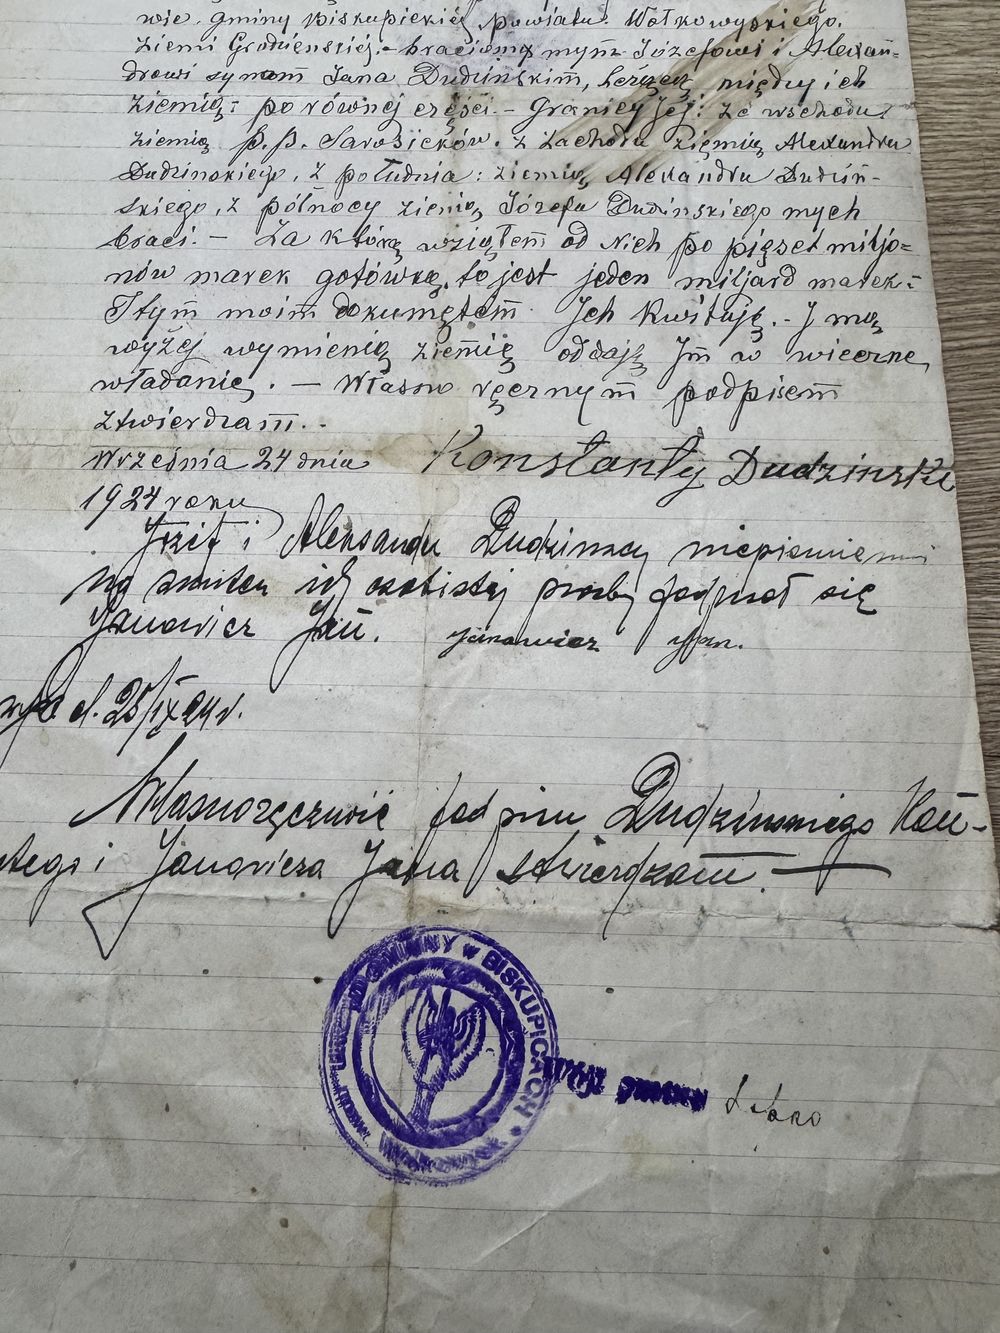 wie, gminy Biskupickiej powiatu Wołkowyskiego,
ziemi Grodzieńskiej.- braciom mym Józefowi i Alexan-
drowi synom Jana Dudzińskim, leżącą między ich
ziemią: po równej części.- Granicy jej: ze wschodu
ziemią p.p. Sarosieków. z Zachodu ziemią Alexandra
Dudzinskiego, z południa: ziemią Alexandra Dudziń-
skiego, z północy ziemią Józefa Dudzinskiego mych
braci.- Za którą wziąłem od nich po pięset miljo-
nów marek gotówką, to jest jeden miljard marek-
I tym moim dokumętem Ich kwituję.- I mą
wyżej wymienią ziemię oddaję Im w wieczne
władanie.- Własno ręcznym podpisem
ztwierdzam.-
Wrzesnia 24 dnia Konstanty Dudzinski
1924 roku
Józef i Aleksander Dudzinscy niepismienni
na skutek ich osobistej prośby podpisał się
Janowicz Jan. Janowicz Jan.
d. 25/IX 24 r.
Własnoręczność podpisu Dudzinskiego Kon-
tego i Janowicza Jana stwierdzam.
GMINNY w BISKUPICACH